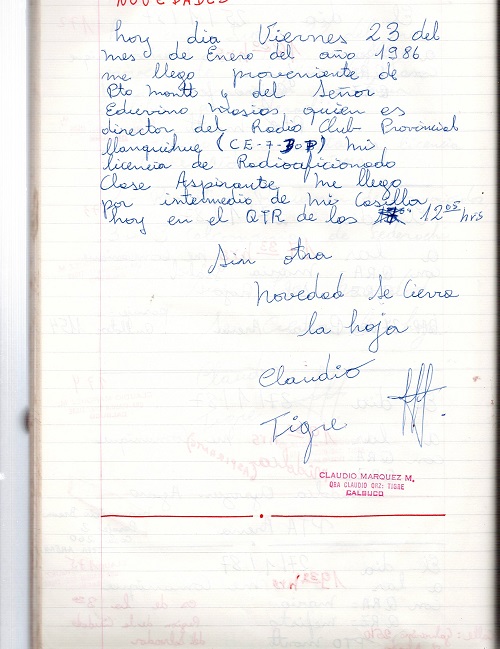 NOVEDADES
hoy dia Viernes 23 del
mes de Enero del año 1986
me llego proveniente de
Pto Montt y del Señor
quien es
director del Radio Club Provincial
Llanquihue (CE-7- ) mi
licencia de Radioaficionado
Clase Aspirante, me llego
por intermedio de mi Casilla
hoy en el QTR de las 12 05 hrs
Sin otra
novedad se cierra
la hoja
Claudio
Tigre
CLAUDIO MARQUEZ M.
QRA CLAUDIO QRZ: TIGRE
CALBUCO